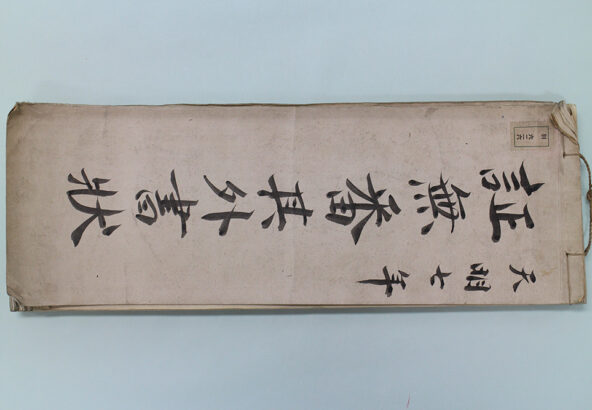 証無番其外書状
天明七年